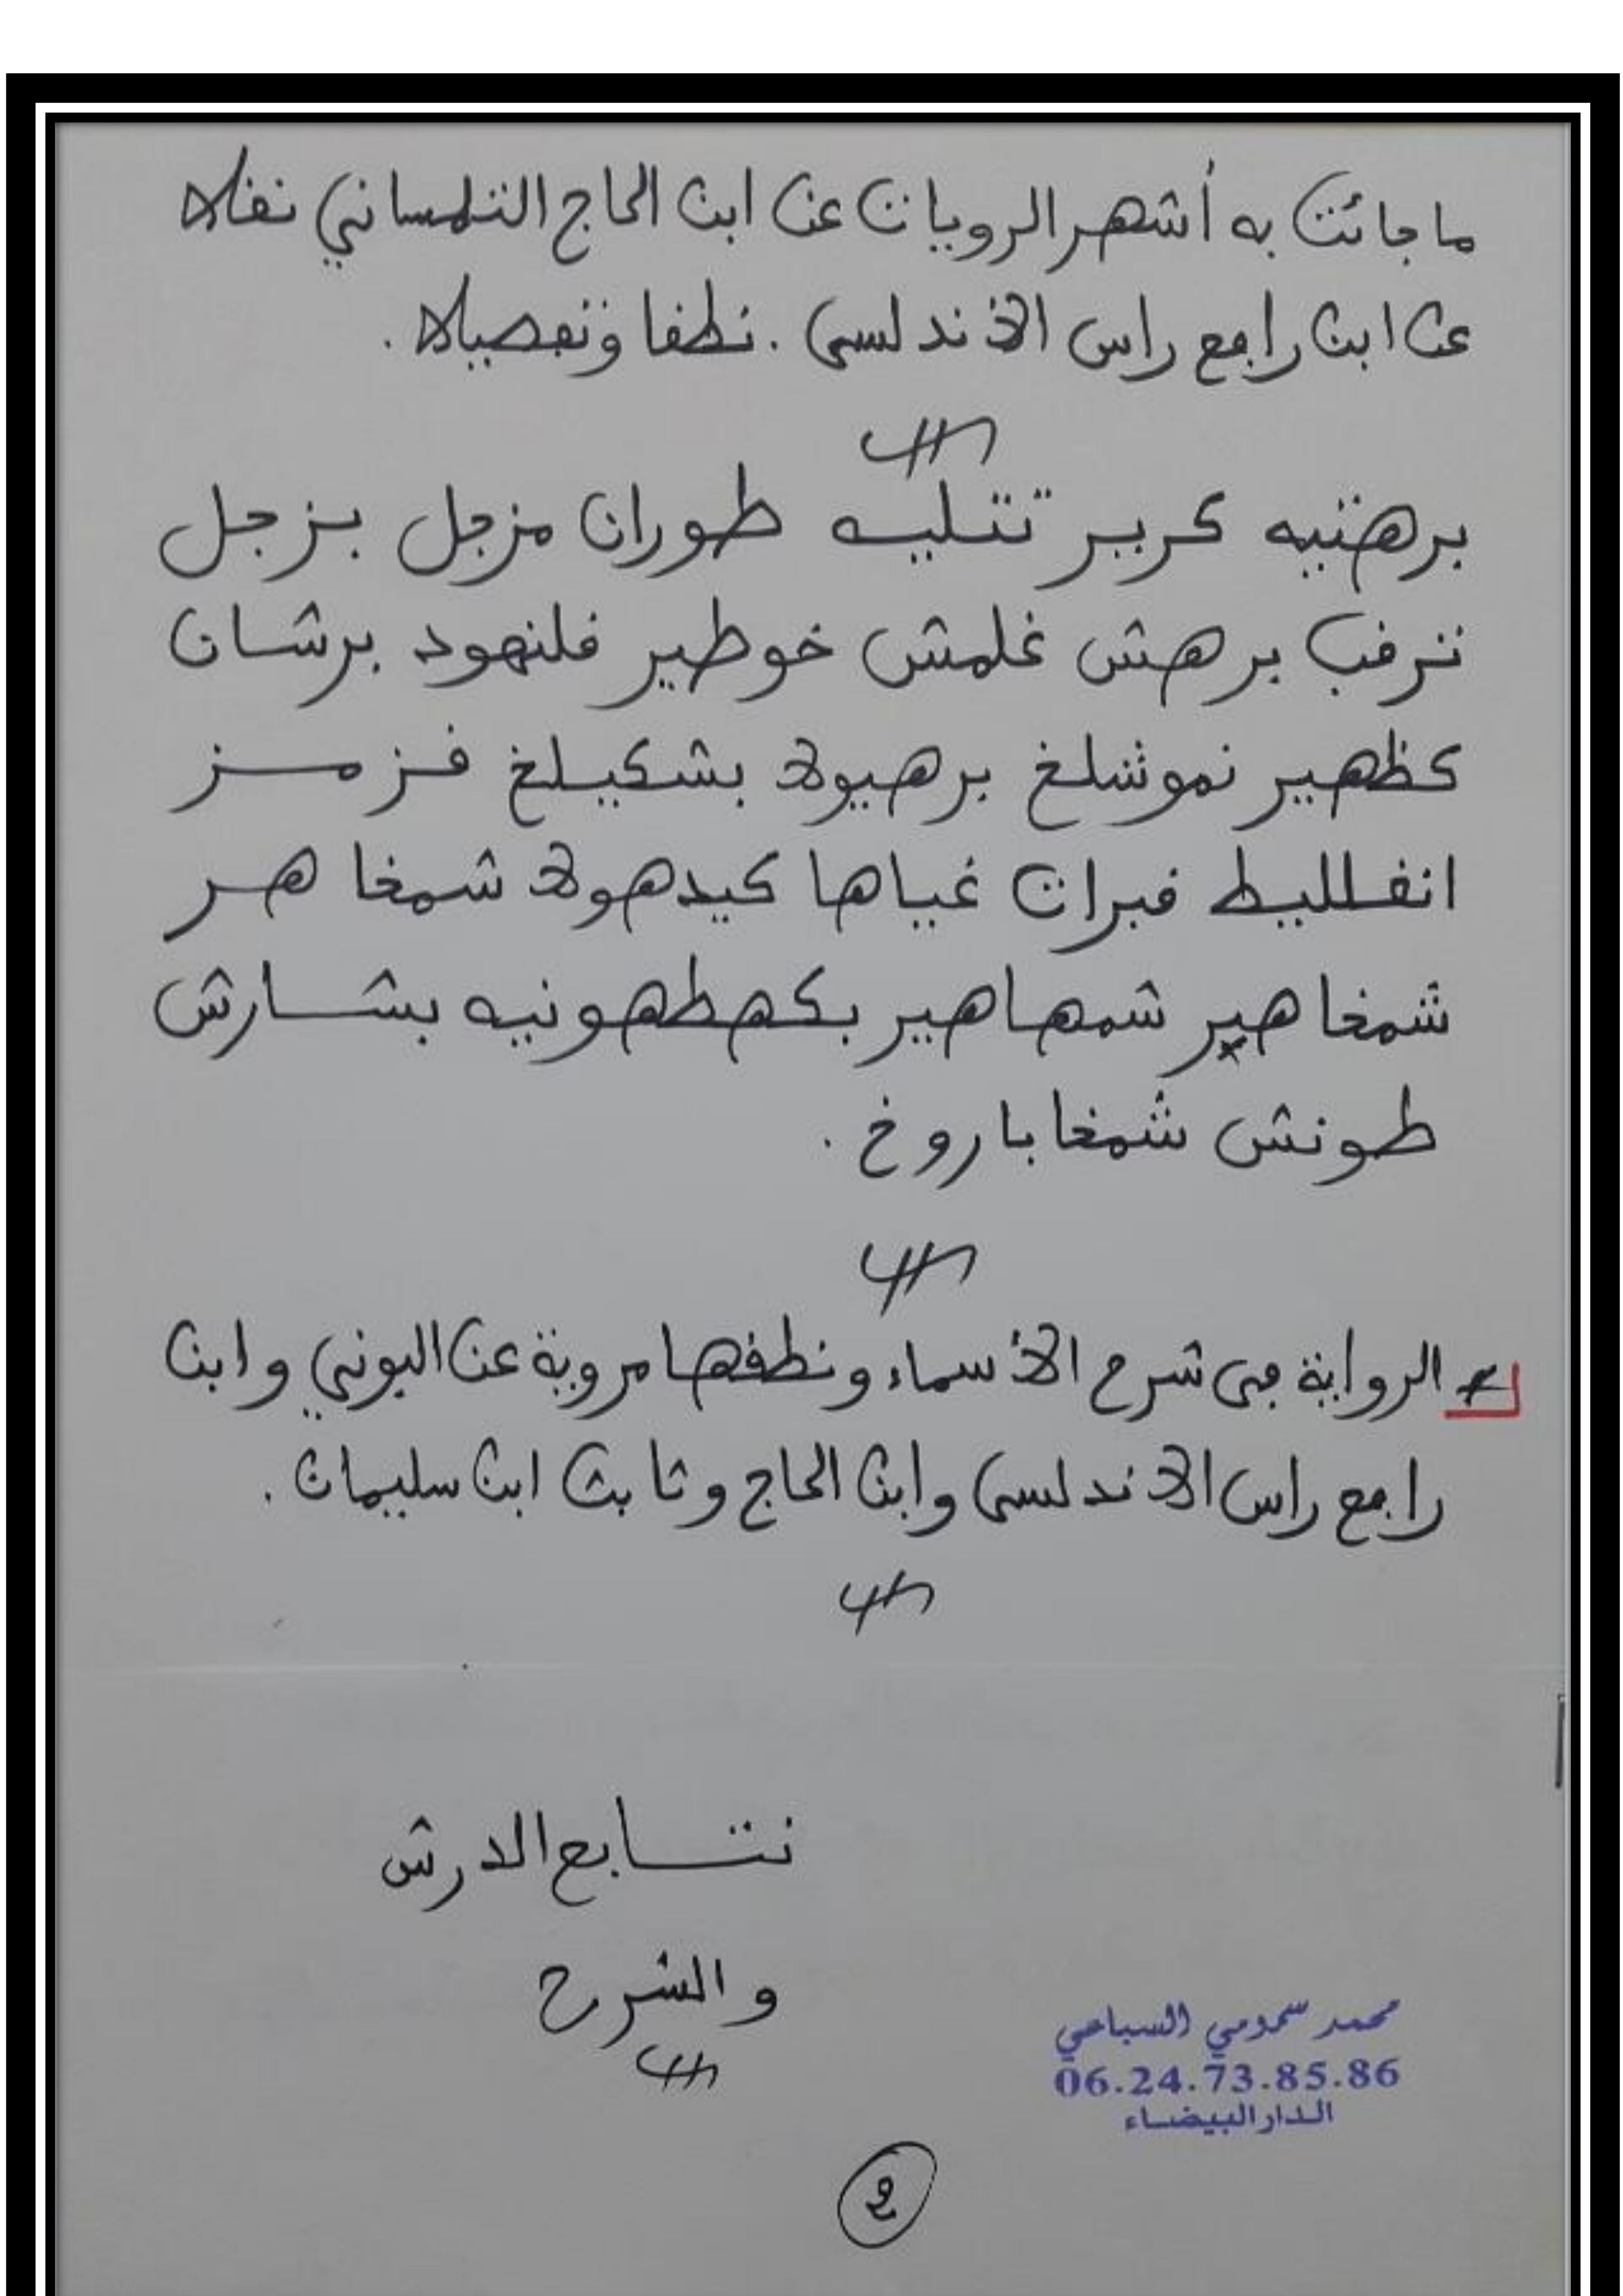 ما جائت به أشهر الرويات عن ابن الحاج التلمساني نقلا
عن ابن رافع راس الأندلسي . نطقا وتفصيلا .
برهتيه كرير تتليه طوران مزجل بزجل
ترقب برهش غلمش خوطير قلنهود برشان
كظهير نموشلخ برهيولا بشكيلخ قزمز
انغلليط قبرات غياها كيدهولا شمخاهر
شمخاهير شمهاهير بكهطهونيه بشارش
طونش شمخاباروخ .
الرواية في شرح الأسماء ونطقها مروية عن البوني وابن
رافع راس الأندلسي وابن الحاج وثابت ابن سليمان .
نتابع الدرش
والشرح
محمد سمومي السباعي
06.24.73.85.86
الدار البيضاء
2